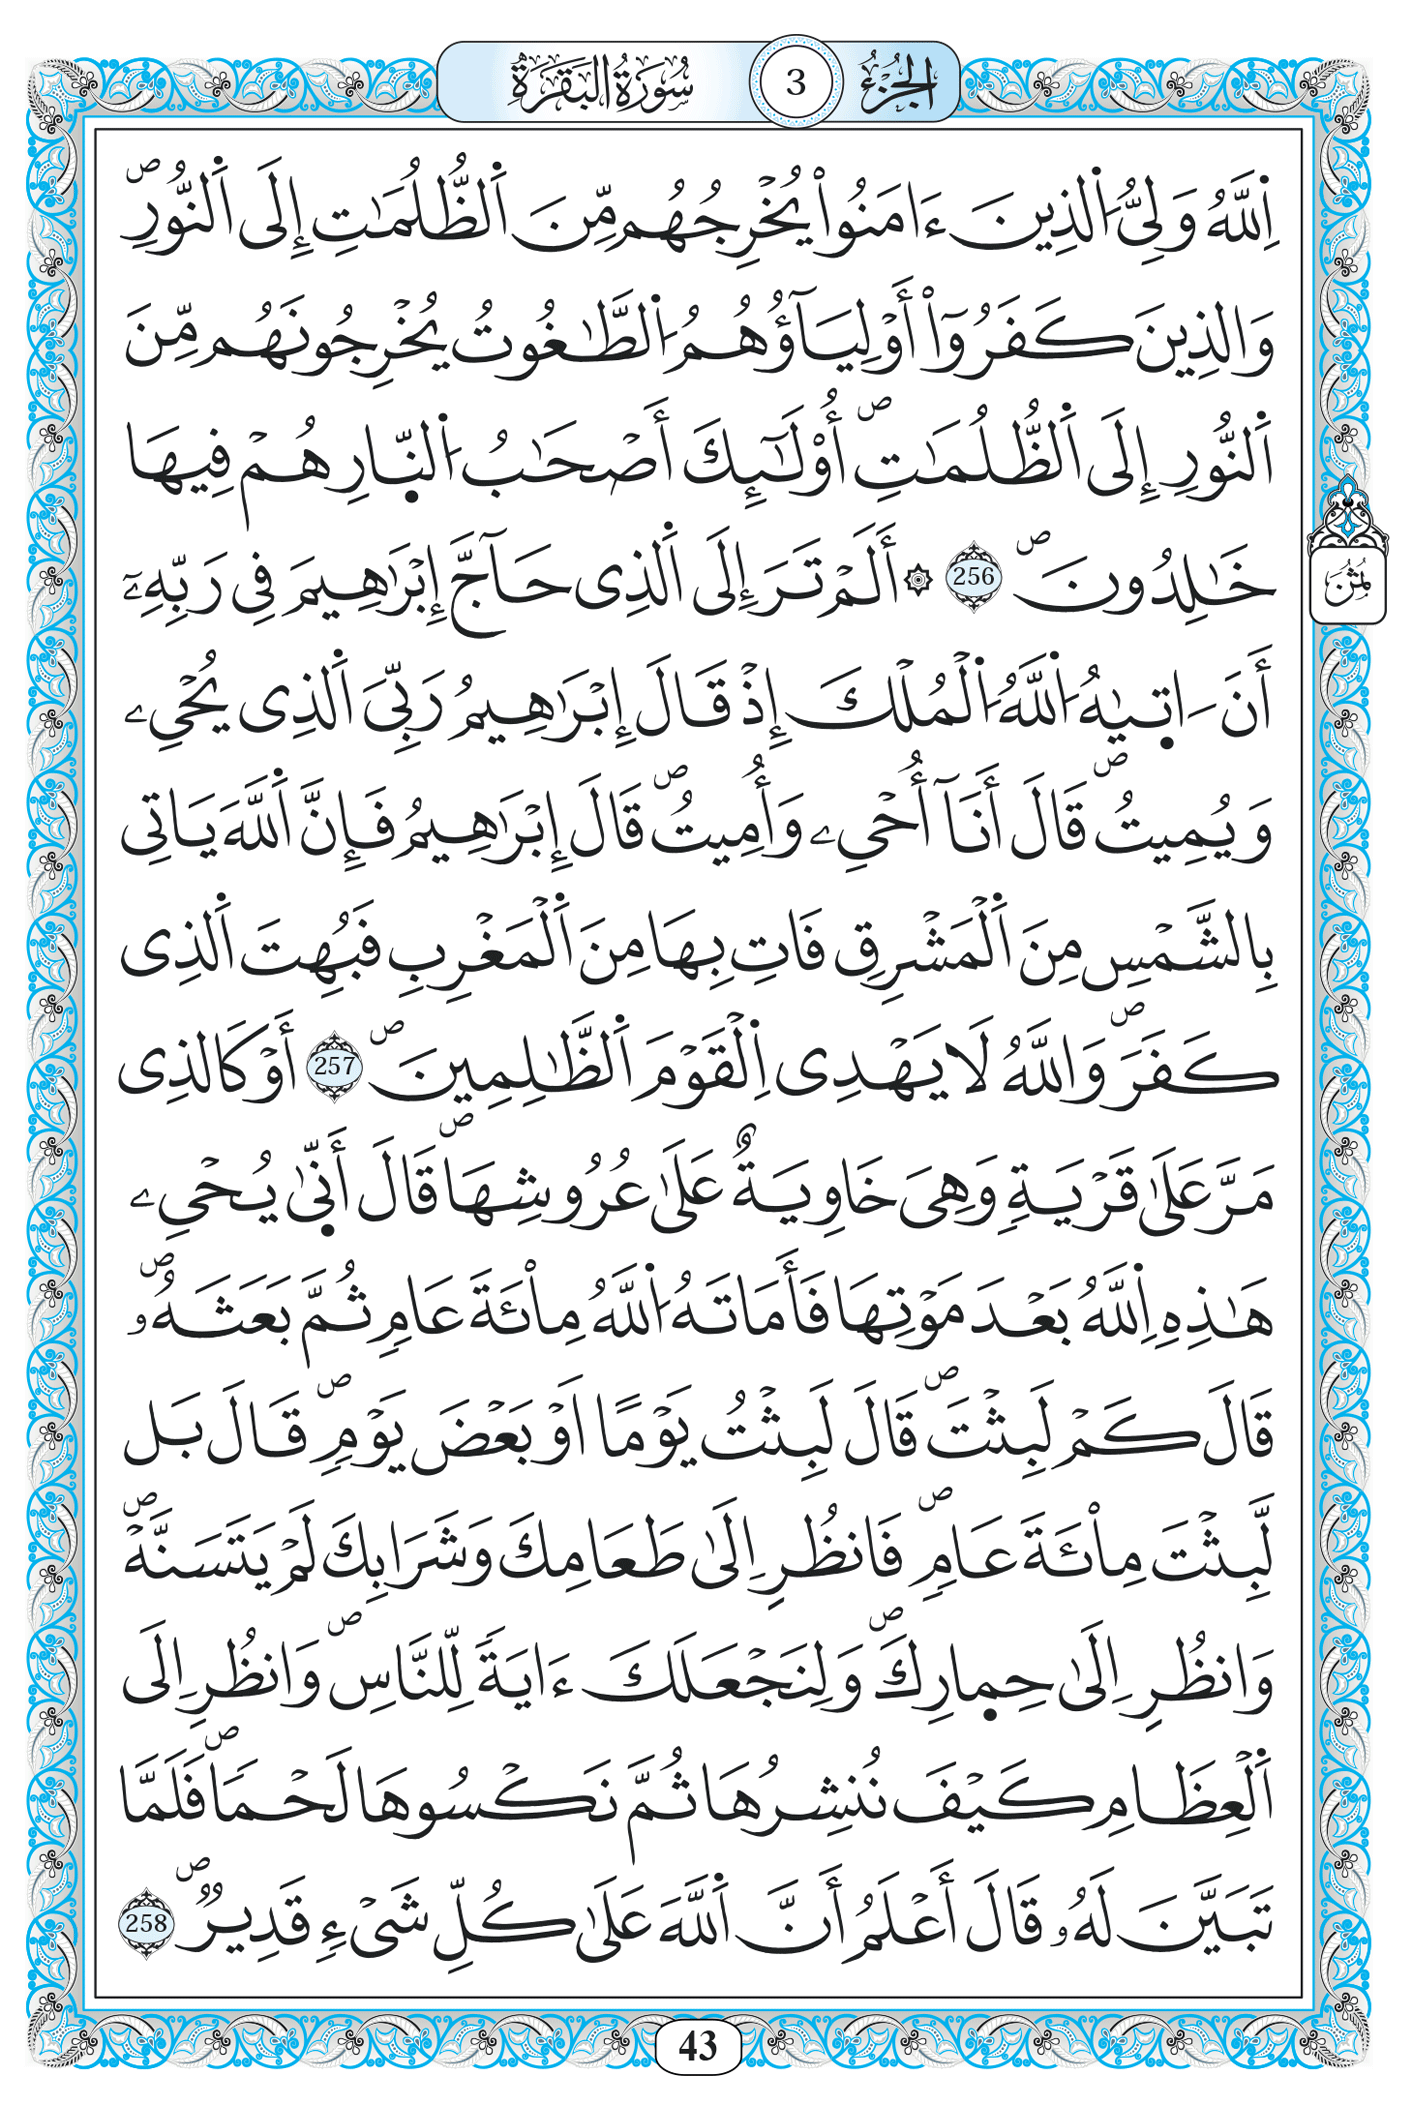 الجُزْءُ 3 سُورَةُ البَقَرَةِ
اِ۬للَّهُ وَلِيُّ اُ۬لذِينَ ءَامَنُواْ يُخْرِجُهُم مِّنَ اَ۬لظُّلُمَٰتِ إِلَى اَ۬لنُّورِۖ
وَالذِينَ كَفَرُوٓاْ أَوْلِيَآؤُهُمُ اُ۬لطَّٰغُوتُ يُخْرِجُونَهُم مِّنَ
اَ۬لنُّورِ إِلَى اَ۬لظُّلُمَٰتِۖ أُوْلَٰٓئِكَ أَصْحَٰبُ اُ۬لنّ۪ارِ هُمْ فِيهَا
خَٰلِدُونَۖ 256 ۞ أَلَمْ تَرَ إِلَى اَ۬لذِى حَآجَّ إِبْرَٰهِيمَ فِى رَبِّهِۦٓ
أَنَ اٰت۪يٰهُ اُ۬للَّهُ اُ۬لْمُلْكَ إِذْ قَالَ إِبْرَٰهِيمُ رَبِّىَ اَ۬لذِى يُحْىِۦ
وَيُمِيتُۖ قَالَ أَنَآ أُحْىِۦ وَأُمِيتُۖ قَالَ إِبْرَٰهِيمُ فَإِنَّ اَ۬للَّهَ يَاتِى
بِالشَّمْسِ مِنَ اَ۬لْمَشْرِقِ فَاتِ بِهَا مِنَ اَ۬لْمَغْرِبِ فَبُهِتَ اَ۬لذِى
كَفَرَۖ وَاللَّهُ لَا يَهْدِى اِ۬لْقَوْمَ اَ۬لظَّٰلِمِينَۖ 257 أَوْ كَالذِى
مَرَّ عَلَىٰ قَرْيَةٖ وَهِىَ خَاوِيَةٌ عَلَىٰ عُرُوشِهَاۖ قَالَ أَنّ۪ىٰ يُحْىِۦ
هَٰذِهِ اِ۬للَّهُ بَعْدَ مَوْتِهَا فَأَمَاتَهُ اُ۬للَّهُ مِاْئَةَ عَامٖ ثُمَّ بَعَثَهُۥۖ
قَالَ كَمْ لَبِثْتَۖ قَالَ لَبِثْتُ يَوْمًا اَوْ بَعْضَ يَوْمٖۖ قَالَ بَل
لَّبِثْتَ مِاْئَةَ عَامٖۖ فَانظُرِ اِلَىٰ طَعَامِكَ وَشَرَابِكَ لَمْ يَتَسَنَّهْۖ
وَانظُرِ اِلَىٰ حِم۪ارِكَۖ وَلِنَجْعَلَكَ ءَايَةٗ لِّلنَّاسِۖ وَانظُرِ اِلَى
اَ۬لْعِظَامِ كَيْفَ نُنشِرُهَا ثُمَّ نَكْسُوهَا لَحْمٗاۖ فَلَمَّا
تَبَيَّنَ لَهُۥ قَالَ أَعْلَمُ أَنَّ اَ۬للَّهَ عَلَىٰ كُلِّ شَىْءٖ قَدِيرٞۖ 258
ثُمُنُ
43